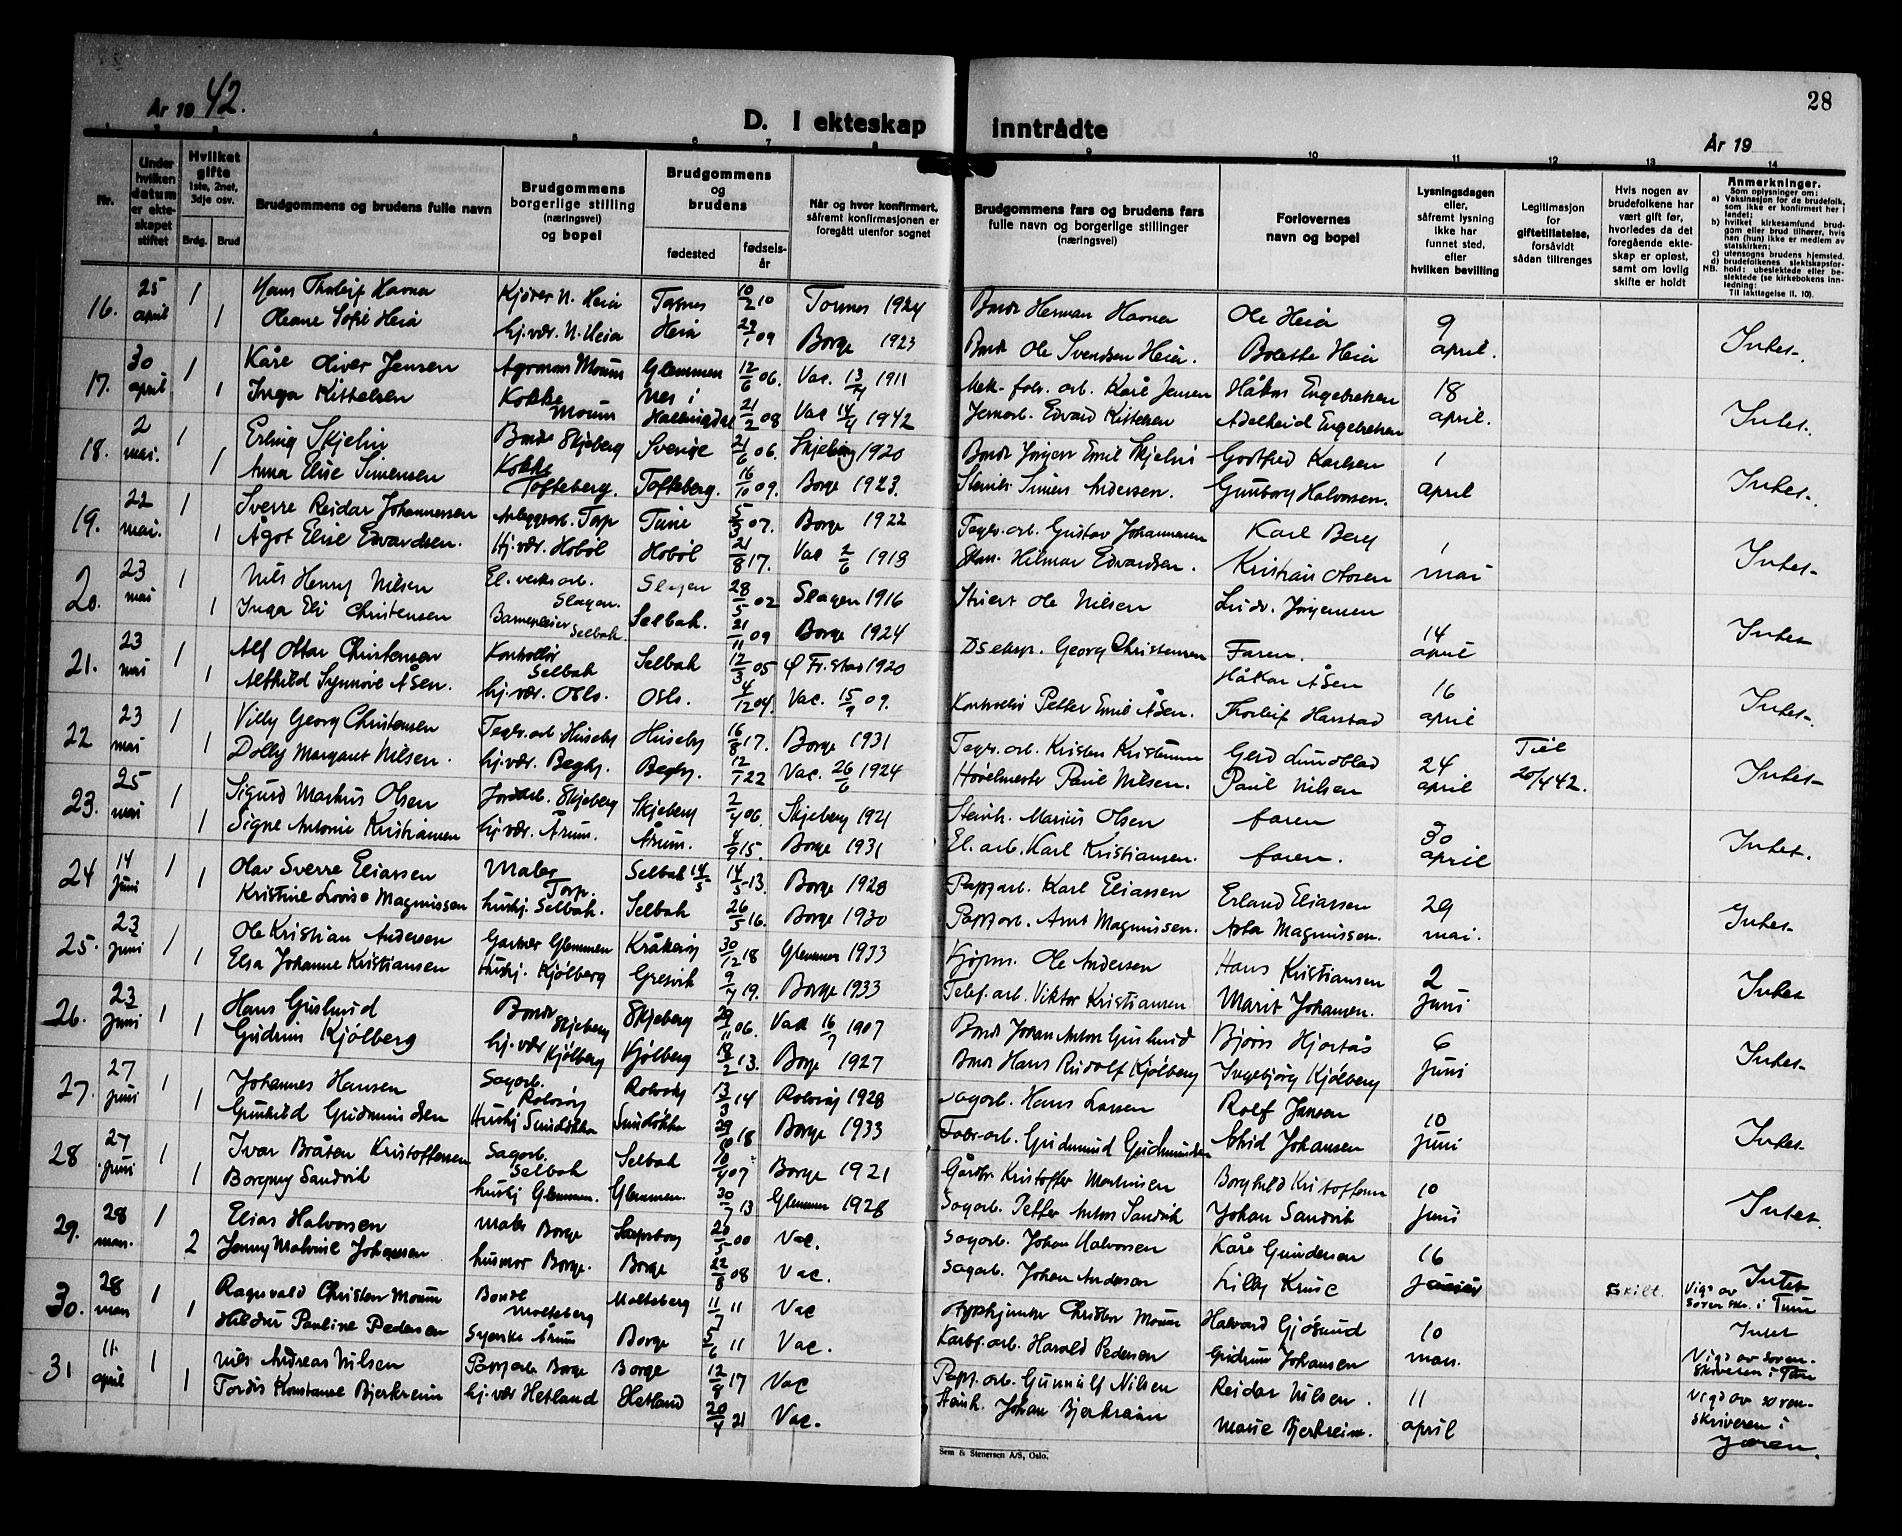 År 1942.
28
D. I ekteskap inntrådte
År 19
Nr.
Under hvilken datum er ekteskapet stiftet
Hvilket gifte 1ste, 2net, 3dje osv.
Brdg. Brud
Brudgommens og brudens fulle navn
Brudgommens borgerlige stilling (næringsvei) og bopel
Brudgommens og brudens
fødested
fødselsår
Når og hvor konfirmert, såfremt konfirmasjonen er foregått utenfor sognet
Brudgommens fars og brudens fars fulle navn og borgerlige stillinger (næringsvei)
Forlovernes navn og bopel
Lysningsdagen eller, såfremt lysning ikke har funnet sted, eller hvilken bevilling
Legitimasjon for giftetillatelse, forsåvidt sådan tillrenges
Hvis nogen av brudefolkene har vært gift før, hvorledes da det foregående ekteskap er opløst, samt om lovlig skifte er holdt
Anmerkninger.
Som oplysninger om:
a) Vaksinasjon for de brudefolk, som ikke er konfirmert her i landet;
b) hvilket kirkesamfund brudgom eller brud tilhører, hvis han (hun) ikke er medlem av statskirken;
c) utensogns brudens hjemsted.
d) brudefolkenes slektskapsforhold: ubeslektede eller beslektede (se kirkebokens innledning:
NB.
Til iakttagelse II. 10).
16. 25 april 1 Hans Tholeif Havna Kjører N. Heia Torsnes 10/2 10 Torsnes 1924 Bonde Herman Havna Ole Heia 9 april. Intet.
1 Oleane Sofie Heia hj.vær. N. Heia Heia 23/1 09 Borge 1923 Bonde Ole Svendsen Heia. Bolette Heia
17. 30 april 1 Kåre Oliver Jensen Agronom Moum Glemmen 12/6 06. Vac. 13/7 1911 Mek. fabr. arb. Karl Jensen Håkon Engebretsen 18 april. Intet.
1 Inga Kittelsen Kokke Moum Nes i Hallingdal 21/2 08 Vac 14/4 1942 Jernarb. Edvard Kittelsen Adelheid Engebretsen
18. 2 mai. 1 Erling Skjelin Bonde Skjeberg Sverige 21/6 06. Skjeberg 1920 Bonde Jørgen Emil Skjelin Godtfred Karlsen 1 april Intet.
1 Anna Elise Simensen Kokke Tofteberg. Tofteberg. 16/10 09. Borge 1923. Steinh. Simen Andersen. Gunborg Halvorsen.
19. 22 mai. 1 Sverre Reidar Johannessen Anleggsarb. Torp Tune 5/3 07. Borge 1922 Teglv. arb. Gustav Johannessen Karl Berg 1 mai Intet.
1 Ågot Elise Edvardsen. Hj. vær. Hobøl Hobøl 21/8 17. Vac 2/6 1918 Hilmar Edvardsen. Kristian Olsen
20. 23 mai 1 Nils Henry Nilsen El. verksarb. Slagen. Slagen 28/5 02 Slagen 1916 Stuert Ole Nilsen Ludv. Jørgensen 14 april Intet
1 Inga Eli Christensen Barnepleier Selbak Selbak. 21/11 09 Borge 1924 Dsekspr. Georg Christensen Faren.
21. 23 mai 1 Alf Ottar Christensen Kontrollør Selbak Selbak 12/3 05 Ø Fr.stad 1920 Håkon Åsen 16 april Intet.
1 Alfhild Synnøve Åsen. hj. vær. Oslo. Oslo. 4/12 04. Vac. 15/9 09. Kontrollør Petter Emil Åsen. Thorleif Harstad
22 23 mai 1 Villy Georg Christensen Teglv. arb. Huseby Huseby 16/8 17. Borge 1931 Teglv. arb. Kristen Kristensen Gerd Lundblad 24 april Tiel 20/4 42. Intet
1 Dolly Margaret Nilsen. hj. vær. Begby. Begby. 12/1 22 Vac. 26/6 1924 Høvelmester Paul Nilsen. Paul Nilsen
23. 25 mai 1 Sigurd Markus Olsen Jordarb. Skjeberg Skjeberg 2/4 06. Skjeberg 1921 Steinh. Marius Olsen faren 30 april Intet.
1 Signe Antonie Kristiansen hj. vær. Årum. Årum. 4/9 15. Borge 1931 El. arb. Karl Kristiansen. faren.
24 14 juni 1 Olav Sverre Eliassen Maler Torp. Selbak 14/5 14/5 13. Borge 1928 Pap. arb. Karl Eliassen Erland Eliassen 29 mai. Intet.
1 Kristine Lovise Magnussen hushj. Selbak. Selbak 26/5 16. Borge 1930 Pap. arb. Arnt Magnussen. Asta Magnussen.
25. 23 juni 1 Ole Kristian Andersen Gartner Glemmen Kråkerøy 30/12 18 Glemmen 1933 Kjøpm. Ole Andersen Hans Kristiansen 2 juni Intet
1 Elsa Johanne Kristiansen Hushj. Kjølberg Gresvik 9/7 19. Borge 1933 Telef. arb. Viktor Kristiansen Marit Johansen.
26. 23 juni 1 Hans Guslund Bonde Skjeberg Skjeberg 29/11 06. Vac 16/7 1907 Bonde Johan Anton Guslund Bjørn Hjortås 6 juni Intet.
1 Gudrun Kjølberg hj. vær Kjølberg Kjølberg 18/2 13. Borge 1927 Bonde Hans Rudolf Kjølberg Ingebjørg Kjølberg
27. 27 juni 1 Johannes Hansen Sagarb. Rolvsøy Rolvsøy 13/3 14 Rolvsøy 1928 Sagarb. Hans Larsen Rolf Jansen 10 juni Intet.
1 Gunhild Gudmundsen Hushj Sundløkka Sundløkka 29/10 18 Borge 1933 Fabr. arb. Gudmund Gudmundsen Astrid Johansen
28 27 juni 1 Ivar Bråten Kristoffersen Sagarb. Selbak Selbak 10/4 07 Borge 1921 Gårdbr Kristoffer Martinsen Borghild Kristoffersen 10 juni Intet.
1 Borgny Sandvik hushj Glemmen. Glemmen. 30/7 13 Glemmen 1928 Sagarb. Petter Anton Sandvik Johan Sandvik
29. 28 mars. 1 Elias Halvorsen Maler Borge Sarpsborg 20/5 00 Vac. Sagarb. Johan Halvorsen Kåre Gundersen 16 Skilt. Intet
2 Jenny Malvine Johansen husmor Borge. Borge 22/8 08 Vac. Sagarb. Johan Andersen Lilly Kruse Vigd av soren skr. i Tune
30. 28 mars 1 Ragnvald Christen Moum Bonde Molteberg Molteberg 11/7 11 Vac Christen Moum Halvard Gjøsund 10 mars. Intet
1 Hildur Pauline Pedersen Syerske Årum Borge 5/6 11 Vac. Karbf. arb. Harald Pedersen Gudrun Johansen Vigd av soren-skriveren i Tune
31 11. april 1 Nils Andreas Nilsen Papp. arb. Borge Borge 12/8 17 Vac Papp. arb. Gunnulf Nilsen Reidar Nilsen. 11 april Vigd av soren-skriveren i Jæren.
1 Tordis Konstanse Bjerkreim hj. vær Hetland Hetland 20/4 21 Vac. Steinh. Johan Bjerkreim Marie Bjerkreim.
Sem & Stenersen A/S, Oslo.